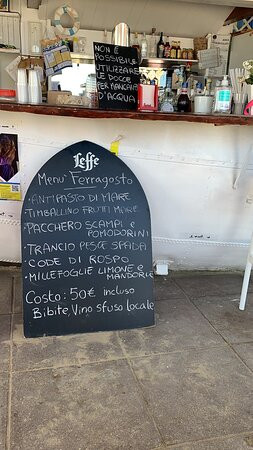 NON È
POSSIBILE
UTILIZZARE
LE DOCCE
PER MANCANZA
D'ACQUA
Leffe
Menù Ferragosto
• ANTIPASTO DI MARE
• TIMBALLINO FRUTTI MARE
• PACCHERO SCAMPI e
POMODORINI
• TRANCIO PESCE SPADA
• CODE DI ROSPO
• MILLEFOGLIE LIMONE e
MANDORLE
Costo: 50€ incluso
Bibite, Vino sfuso locale